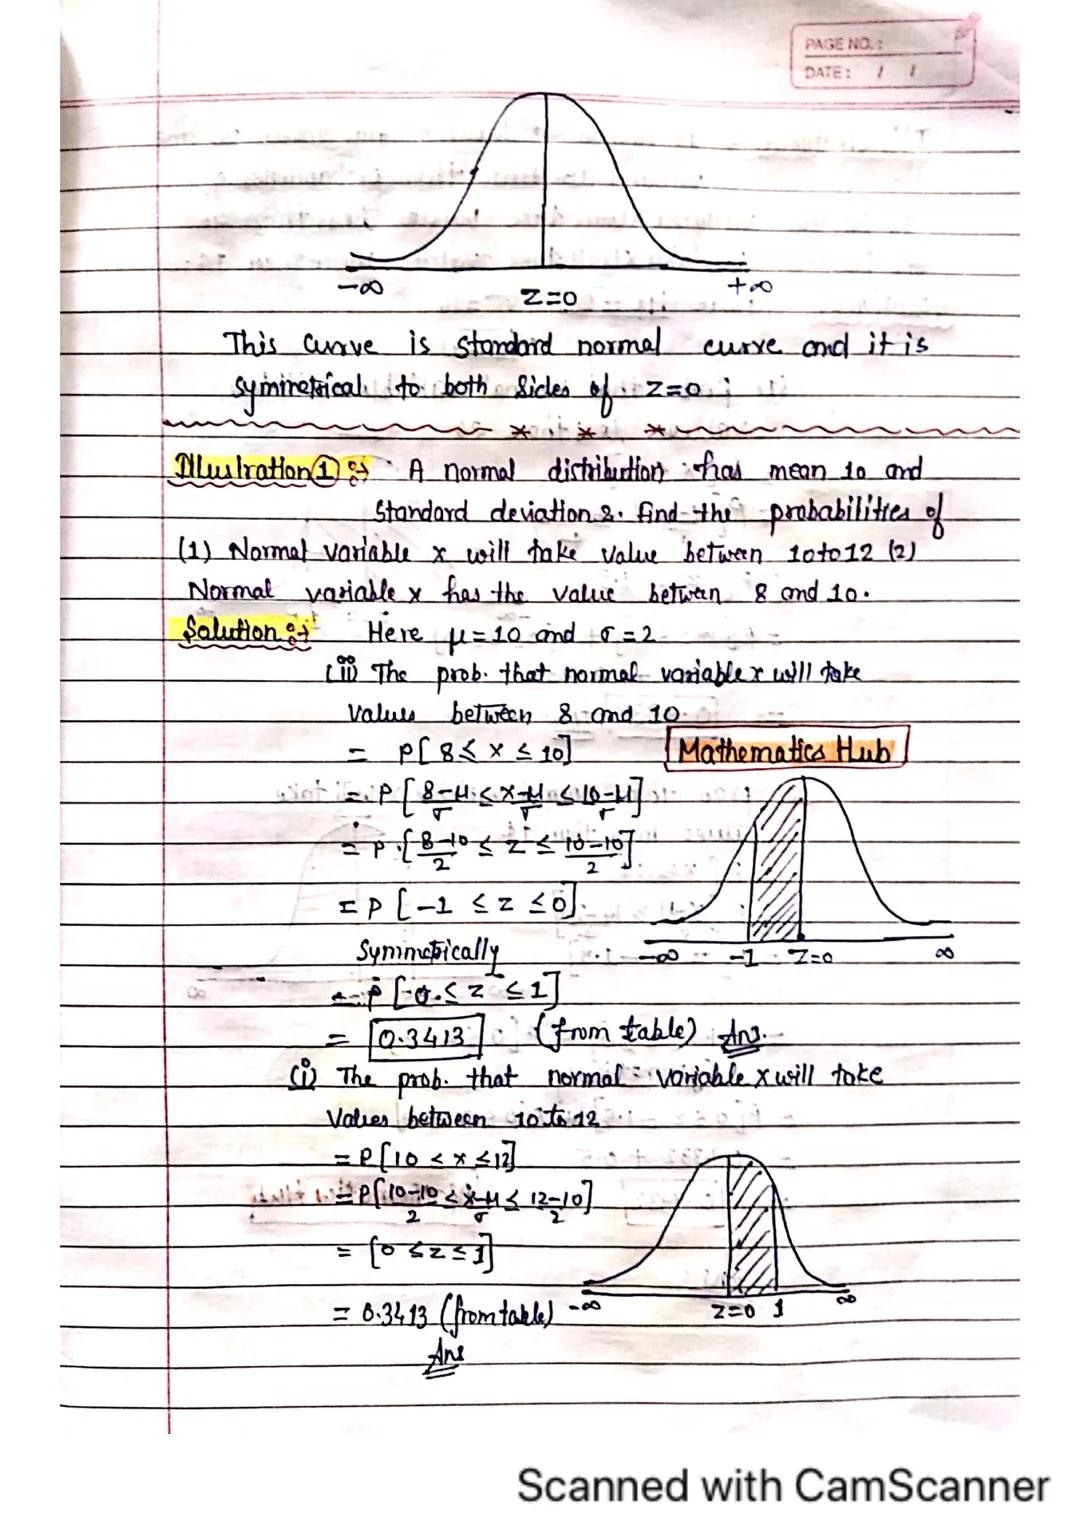 PAGE NO.:
DATE: / /
-∞ Z=0 +∞
This curve is standard normal curve and it is
symmetrical to both sides of Z=0
* * *
Illustration 1 :→ A normal distribution has mean 10 and
Standard deviation 2. find the probabilities of
(1) Normal variable x will take value between 10 to 12 (2)
Normal variable x has the value between 8 and 10.
Solution :→ Here μ=10 and σ=2
(ii) The prob. that normal variable x will take
values between 8 and 10.
= P[8 ≤ x ≤ 10]
Mathematics Hub
= P[(8-μ)/σ ≤ (x-μ)/σ ≤ (10-μ)/σ]
= P[(8-10)/2 ≤ z ≤ (10-10)/2]
= P[-1 ≤ z ≤ 0]
-∞ -1 Z=0 ∞
Symmetrically
= P[0 ≤ z ≤ 1]
= 0.3413 (from table) Ans.
(i) The prob. that normal variable x will take
Values between 10 to 12
= P[10 < x ≤ 12]
= P[(10-10)/2 < (x-μ)/σ ≤ (12-10)/2]
= [0 ≤ z ≤ 1]
-∞ Z=0 1 ∞
= 0.3413 (from table)
Ans
Scanned with CamScanner